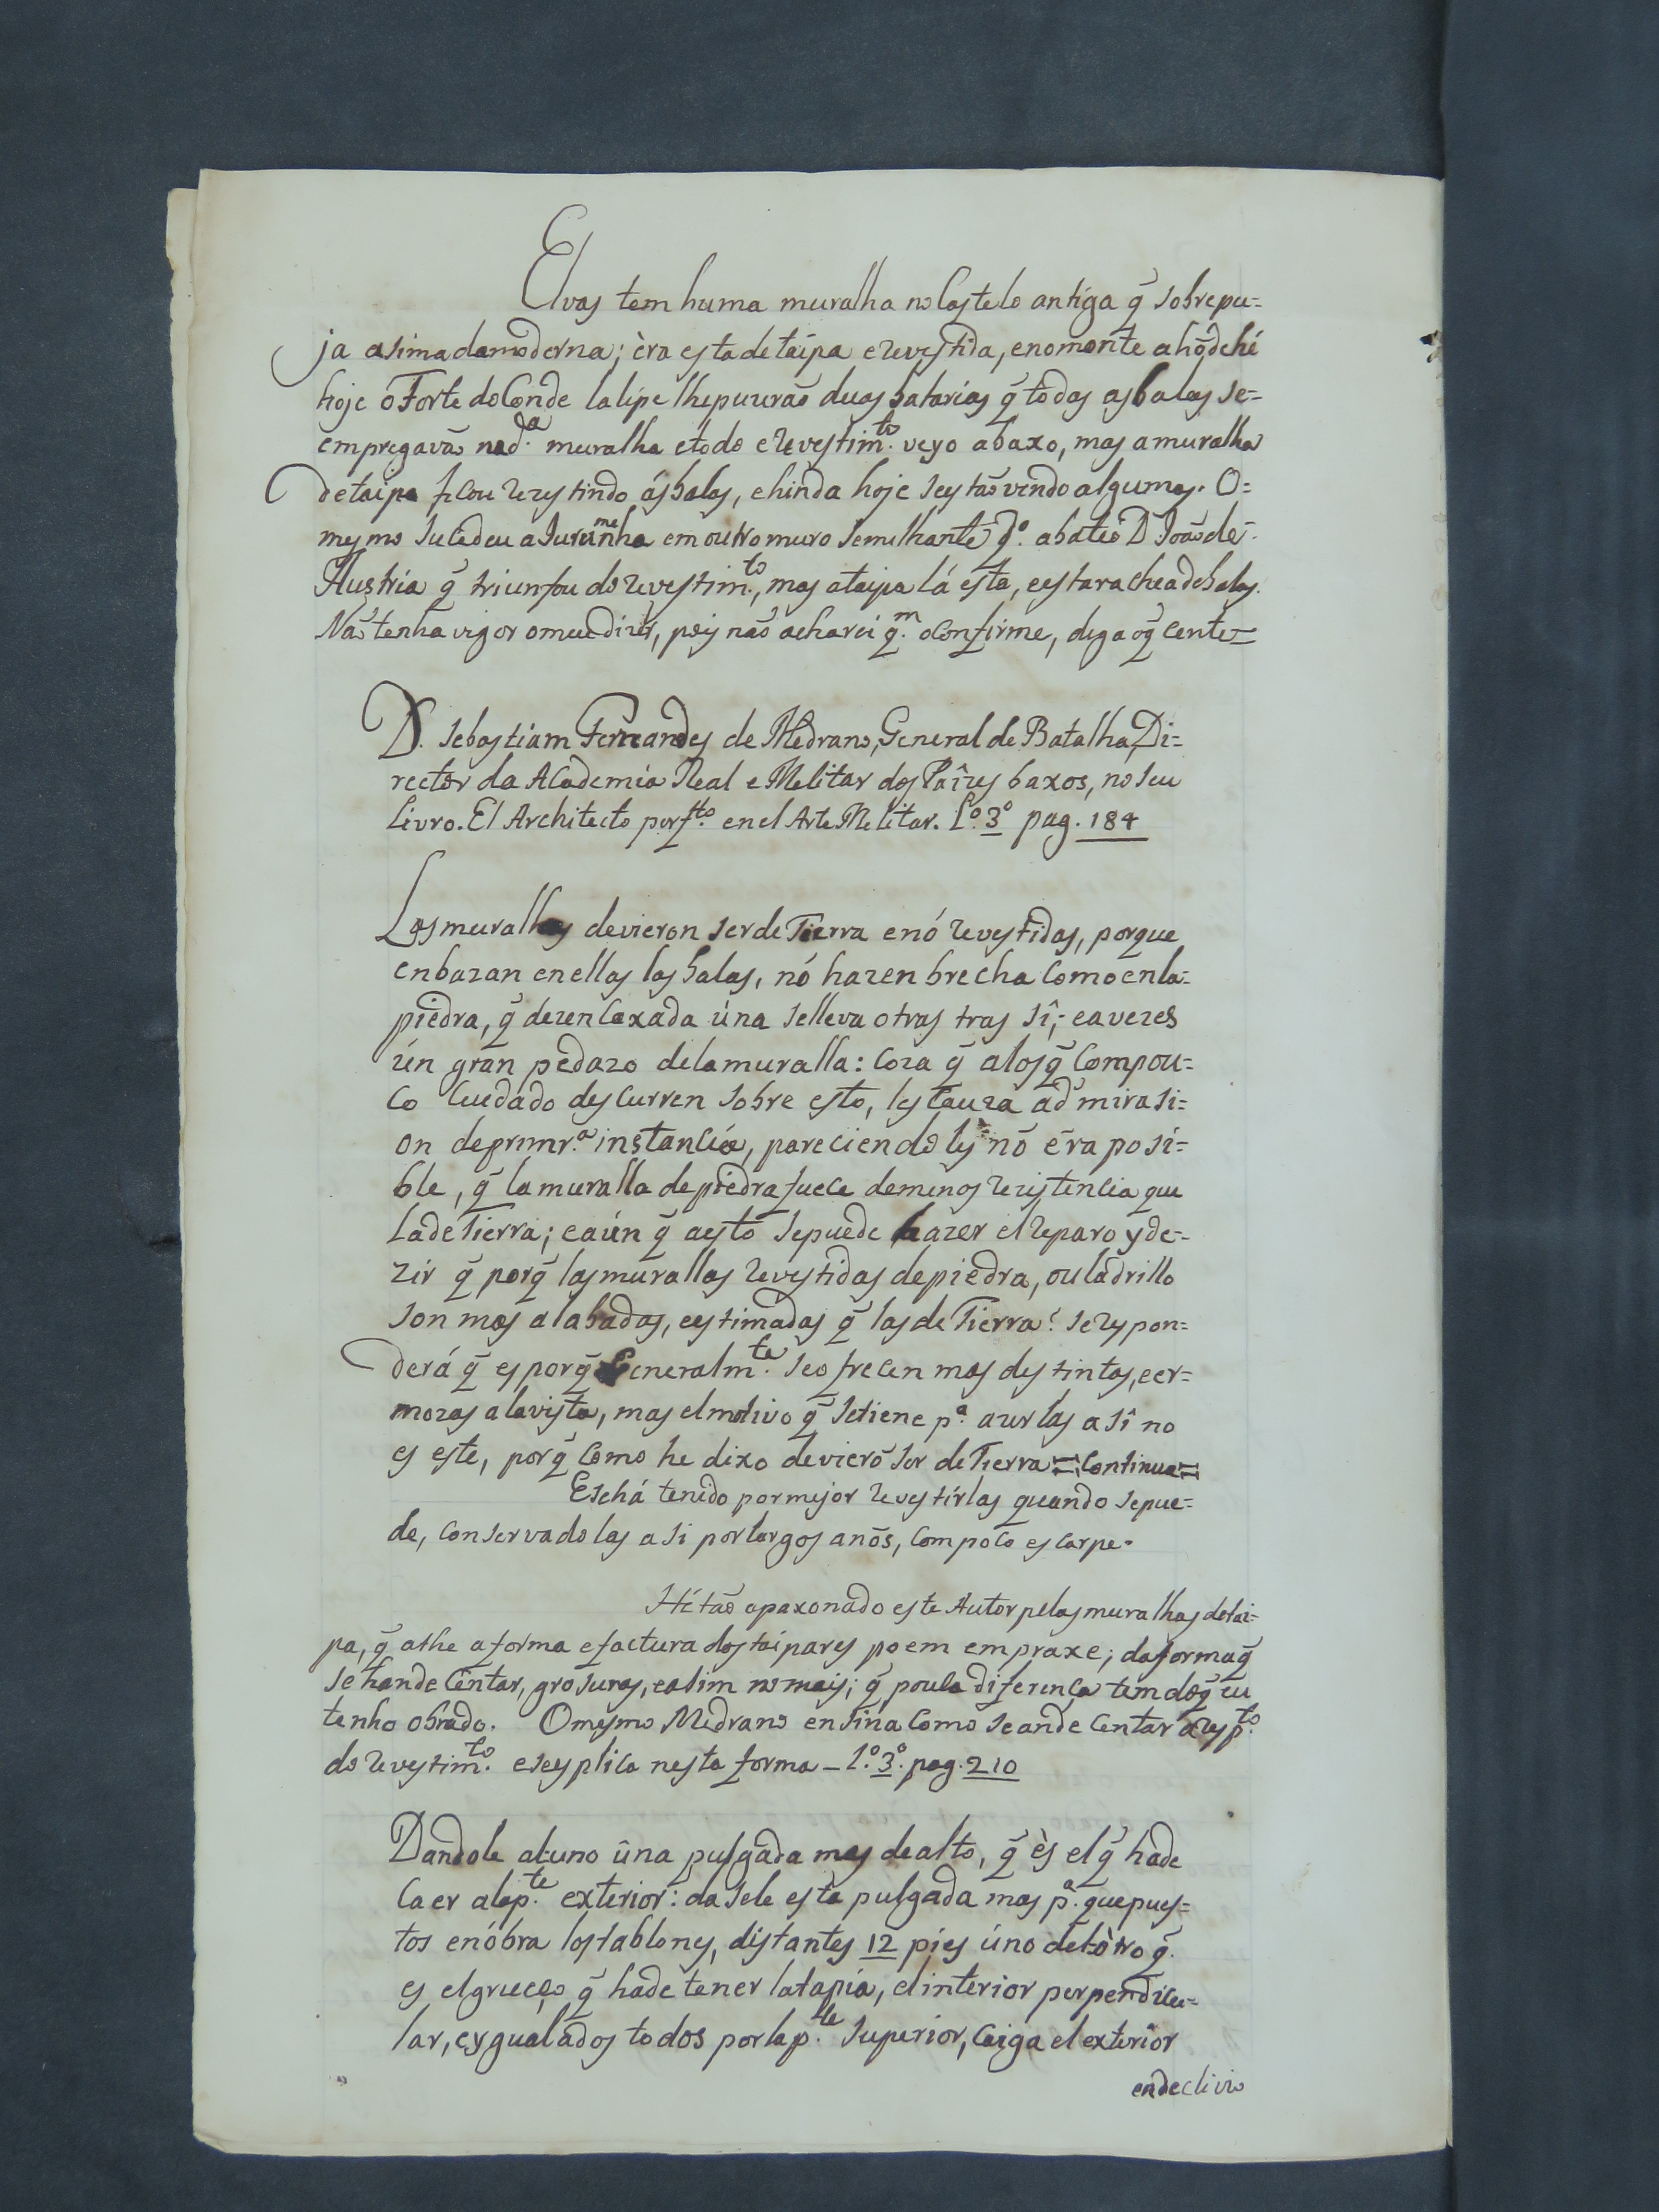 Elvas tem huma muralha no Castelo antiga q̃ sobrepu=
ja asima damoderna; èra esta detaipa e revestida, enomonte ahõdehé
hoje o Forte doConde laLipe lhepuzeraõ duas batarias q̃ todas asbalas se=
empregavaõ nad.ª muralha etodo e revestim.to veyo abaxo, mas amuralha
detaipa ficou rezistindo ásbalas, ehinda hoje sestaõ vendo algumas. O=
mesmo sucedeu aJurumenha em outro muro semilhante q.º abateo D João de=
Austria q̃ triunfou do revestim.to, mas ataipa lá esta, eestara cheadebalas.
Naõ tenha vigor omeudizer, pois naõ acharei q.m oconfirme, diga oq̃ cente=
D. Sebastiam Fernandes de Medrano, General de Batalha, Di=
rector da Academia Real e Melitar dos Paîzes baxos, no seu
Livro. El Architecto perf.to en el Arte Melitar. L.º 3º pag. 184
Las murallas devieron ser de Tierra enó revestidas, porque
enbazan enellas las balas, nó hazen brecha como enla=
piedra, q̃ dezencaxada úna selleva otras tras sî; eavezes
ún gran pedazo delamuralla: coza q̃ alosq̃ Compou=
co Cuedado descurren sobre esto, les Cauza admirasi=
on deprimr.ª instancia, pareciendoles nõ éra posi=
ble, q̃ lamuralla depiedra fuece demenos rezistencia que
ladeTierra; eaún q̃ aesto sepuede hazer el reparo y de=
zir q̃ porq̃ lasmurallas revestidas depiedra, ou ladrillo
son mas alabadas, eestimadas q̃ las de Tierra? se respon=
derá q̃ es porq̃ Generalm.te se ofrecen mas destintas, eer=
mozas alavista, mas elmotivo q̃ setiene p.ª azerlas asî no
es este, porq̃ como he dixo devierõ ser de Tierra = Continua =
Esehá tenido pormejor revestírlas quando sepue=
de, conservadolas asi porlargos anõs, Compoco escarpe.
Hé taõ apaxonado este Autor pelasmuralhas detai=
pa, q̃ athe aforma efactura dostaipares poem empraxe; daformaq̃
sehande Centar, grosuras, easim nomais; q̃ pouca diferenca tem doq̃ eu
tenho obrado. Omesmo Medrano ensina Como seande Centar aresp.to
do revestim.to esesplica nesta forma _ L.º 3º. pag. 210
Dandole aluno ûna pulgada mas dealto, q̃ ès elq̃ hade
Caer alap.te exterior: dasele esta pulgada mas p.ª quepues=
tos enóbra lostablones, distantes 12 pies úno delòtro q̃.
es elgrueço q̃ hade tener latapia, elinterior perpendicu=
lar, eygualados todos porlap.te Superior, Caiga elexterior
endeclivio